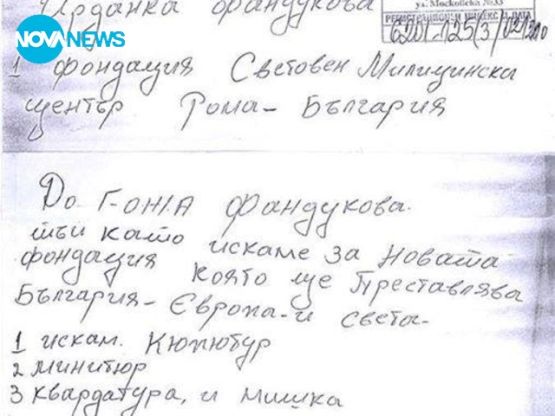 Йорданка фандукова
ул. Московска №33
РЕГИСТРАЦИОНЕН ИНДЕКС И ДАТА
NOVA NEWS
1 фондация Световен Милицинска
център Рома - България
До Г-ОЖА фандукова.
тъи като искаме за новата
фондация която ще Преставлява
България - Европа - и света -
1 искам. Кюмютур
2 минитюр
3 квардатура, и мишка